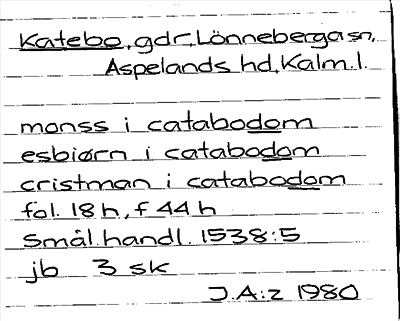 Katebo, gdr, Lönneberga sn,
Aspelands hd, Kalm. l.
monss i catabodom
esbiørn i catabodom
cristman i catabodom
fol. 18 h, f 44 h
Smål. handl. 1538:5
jb 3 sk
J.A:z 1980